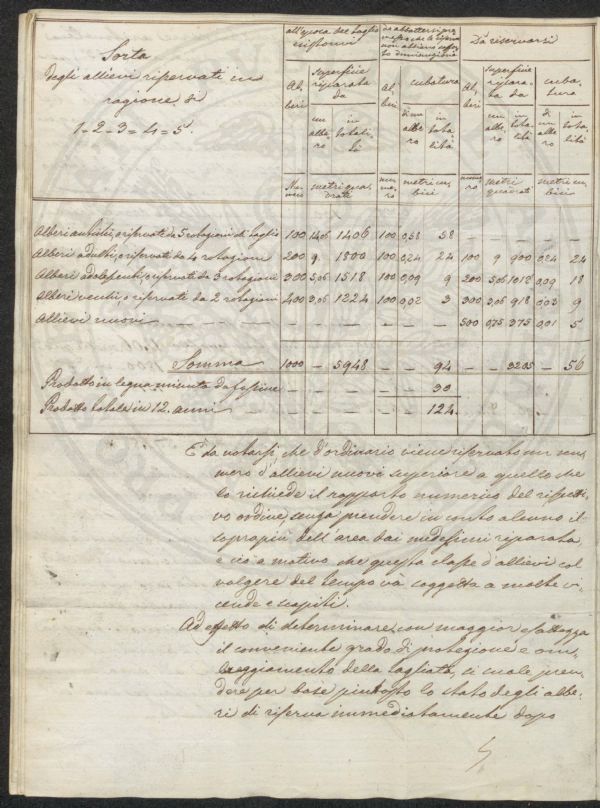 Sorta
degli allievi riservati in
ragione di
1 = 2 = 3 = 4 = 5.
all'epoca del taglio esistenti
da abbattersi
Da riservarsi
Alberi
superficie riparata da
un albero
in totalità
Alberi
cubatura
di un albero
in totalità
Alberi
superficie riparata da
un albero
in totalità
cubatura
di un albero
in totalità
Numero
metri quadrati
numero
metri cubici
numero
metri quadrati
metri cubici
Alberi antichi, riservati da 5 rotazioni di taglio 100 14,06 1406 100 0,58 58 — — — — —
Alberi adulti, riservati da 4 rotazioni 200 9 1800 100 0,24 24 100 9 900 0,24 24
Alberi adolescenti, riservati da 3 rotazioni 300 5,06 1518 100 0,09 9 200 5,06 1012 0,09 18
Alberi vecchi, riservati da 2 rotazioni 400 3,06 1224 100 0,02 3 300 3,06 918 0,03 9
Allievi nuovi — — — — — — 500 0,75 375 0,01 5
Somma 1000 — 5948 — — 94 — — 3205 — 56
Prodotto in legna minuta da fascine — — — — — 30
Prodotto totale in 12. anni — — — — — 124.
È da notarsi, che d'ordinario viene riservato un nu-
mero d'allievi nuovi superiore a quello che
lo richiede il rapporto numerico del rispetti-
vo ordine, senza prendere in conto alcuno il
sopra più dell'area dai medesimi riparata
e ciò a motivo che questa classe d'allievi col
volgere del tempo va soggetta a molte vi-
cende e scapiti.
Ad effetto di determinare con maggior esattezza
il conveniente grado di protezione e om-
breggiamento della tagliata, si vuole pren-
dere per base piuttosto lo stato degli albe-
ri di riserva immediatamente dopo